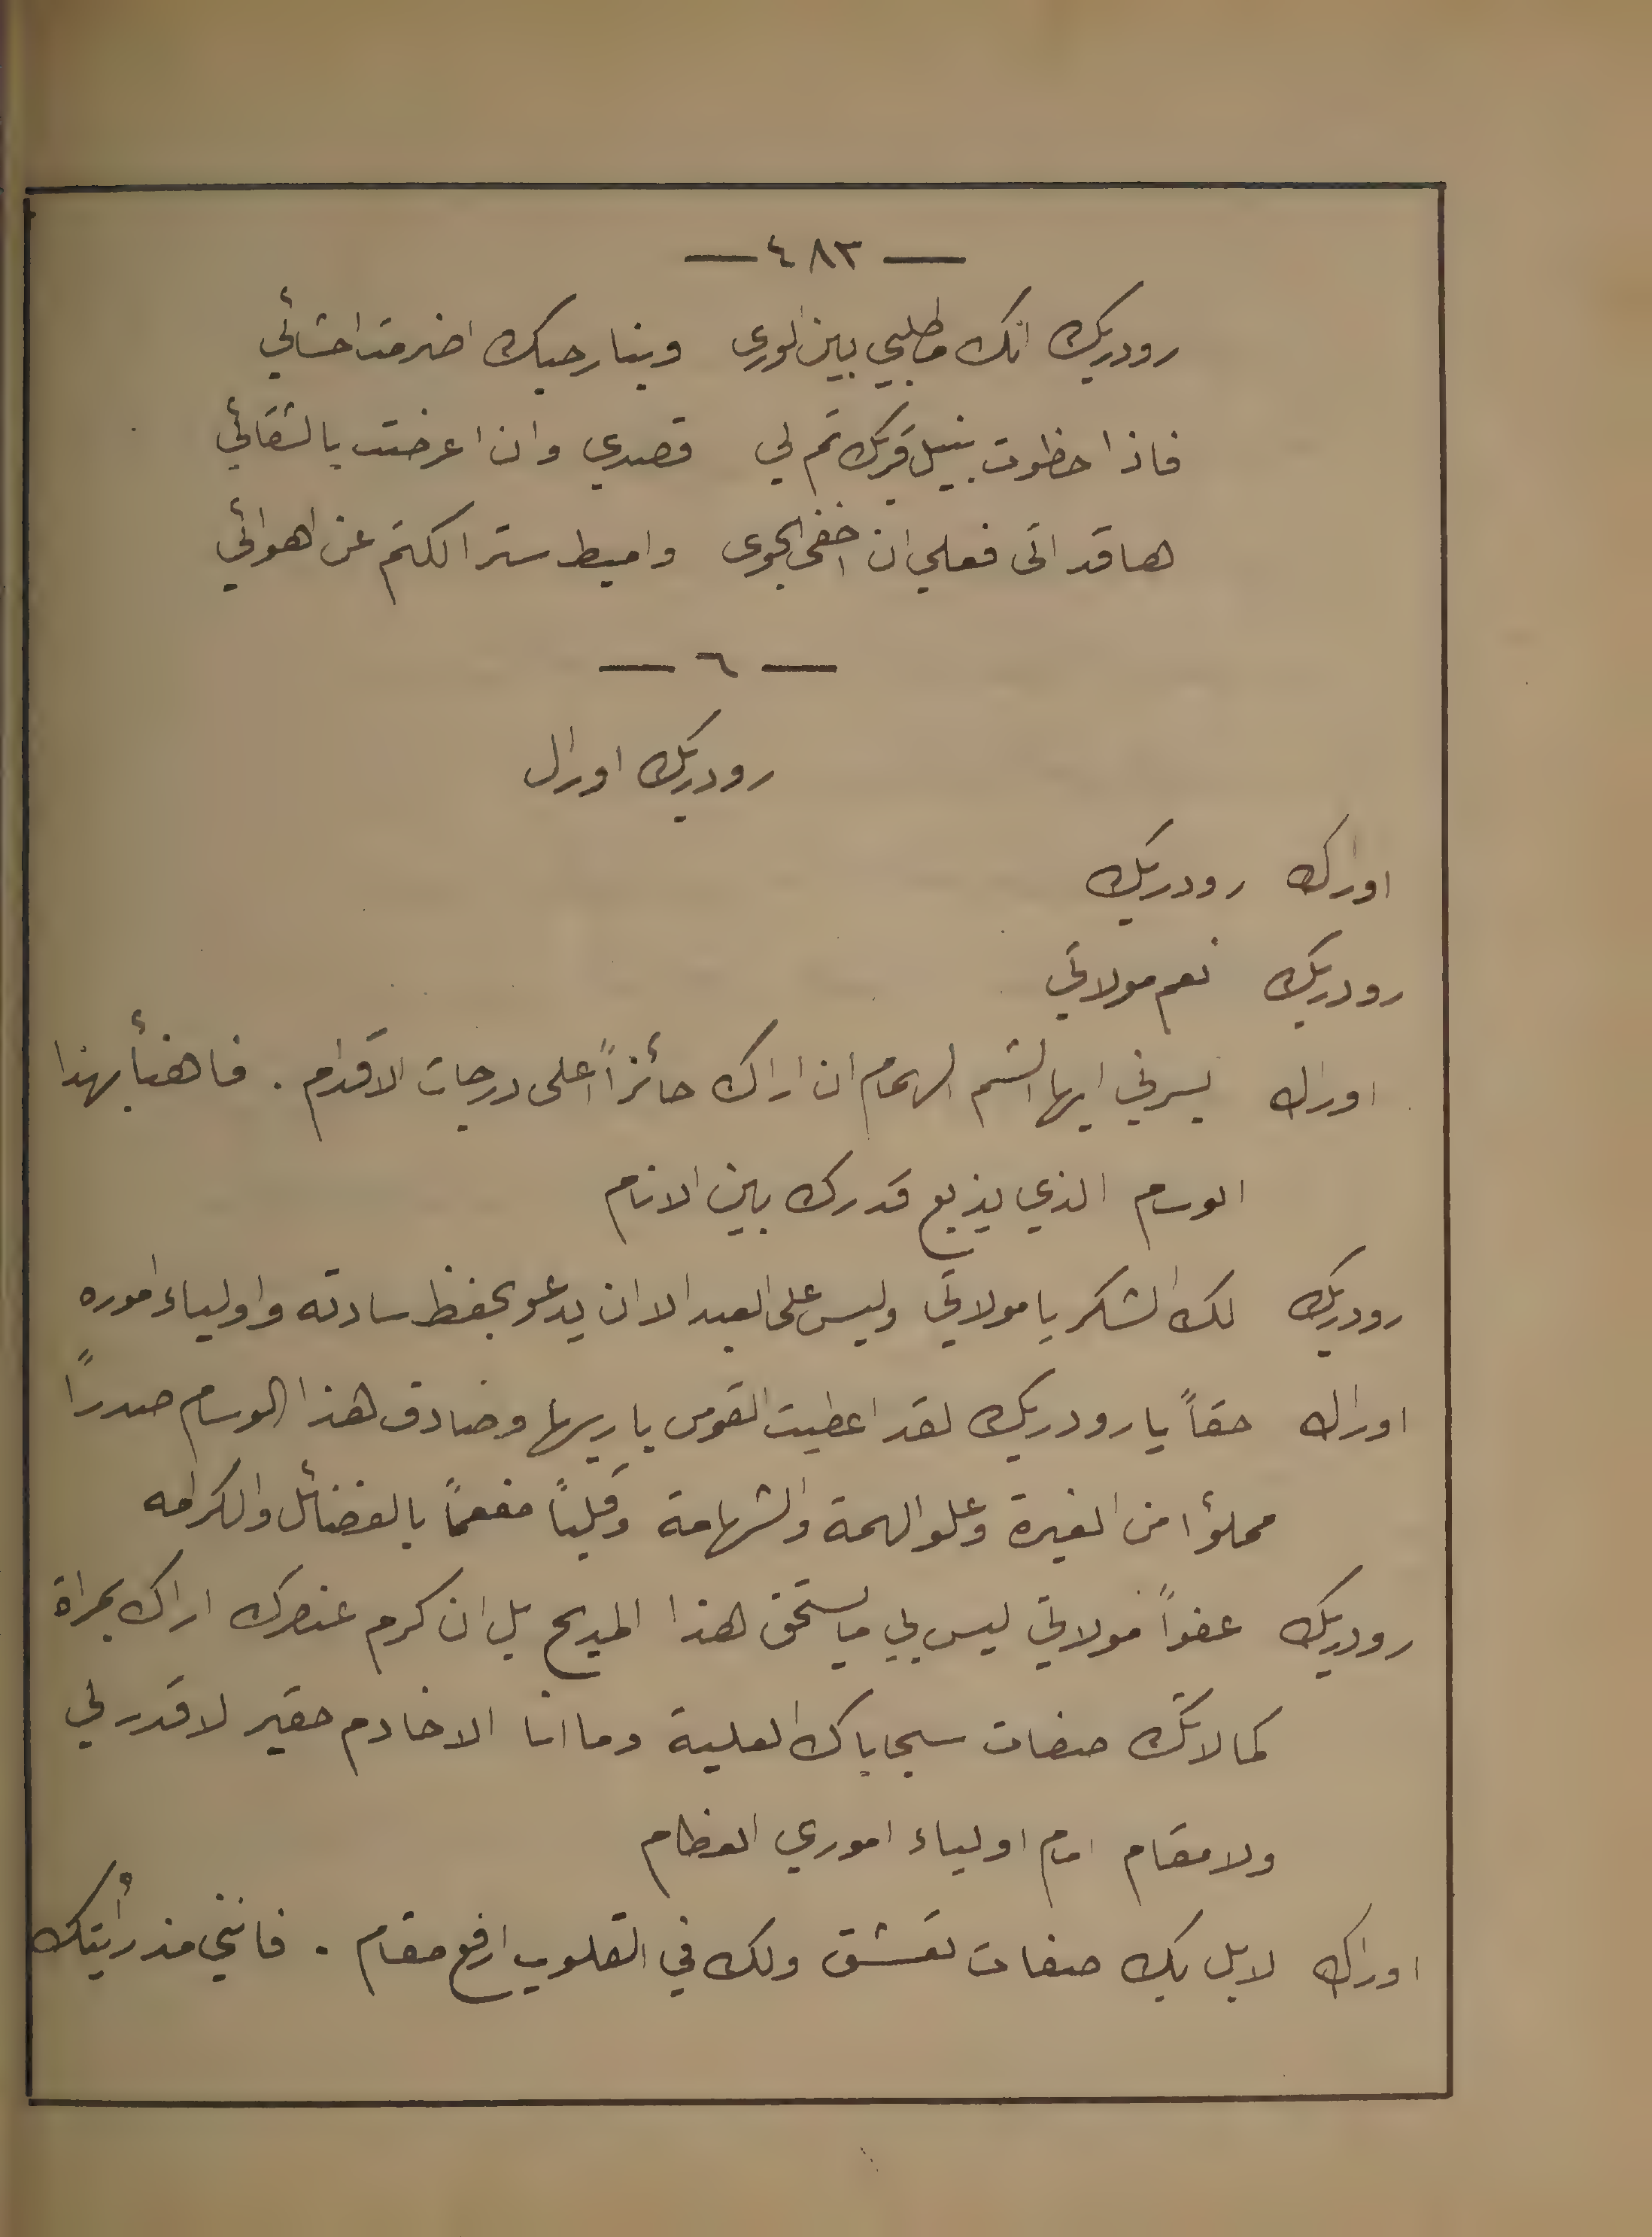 — ٤٨٣ —
رودريك انك مطلبي بين الورى وبنار حبك اضرمت احشائي
فاذا حظوت بنيل قربك تم لي قصدي وان اعرضت يا لشقائي
ها قد اتى فعلي ان اخفى الجوى واميط ستر الكتم عن اهوائي
— ٦ —
رودريك اوراك
اوراك رودريك
رودريك نعم مولاتي
اوراك يسرني ايها الشهم الهمام ان اراك حائزاً اعلى درجات الاقدام . فاهنأ بهذا
الوسام الذي يذيع قدرك بين الانام
رودريك لك الشكر يا مولاتي وليس على العبد الا ان يدعو بحفظ سادته واولياء اموره
اوراك حقاً يا رودريك لقد اعطيت القوس باريها وصادف هذا الوسام صدراً
مملؤا من الغيرة وعلو الهمة والشهامة وقلباً مفعماً بالفضائل والكرامه
رودريك عفواً مولاتي ليس بي ما يستحق هذا المديح بل ان كرم عنصرك اراك بمراة
كمالاتك صفات سجاياك العلية وما انا الا خادم حقير لا قدر لي
ولا مقام امام اولياء اموري العظام
اوراك لا بل بك صفات تعشق ولك في القلوب ارفع مقام . فانني مذ رأيتك